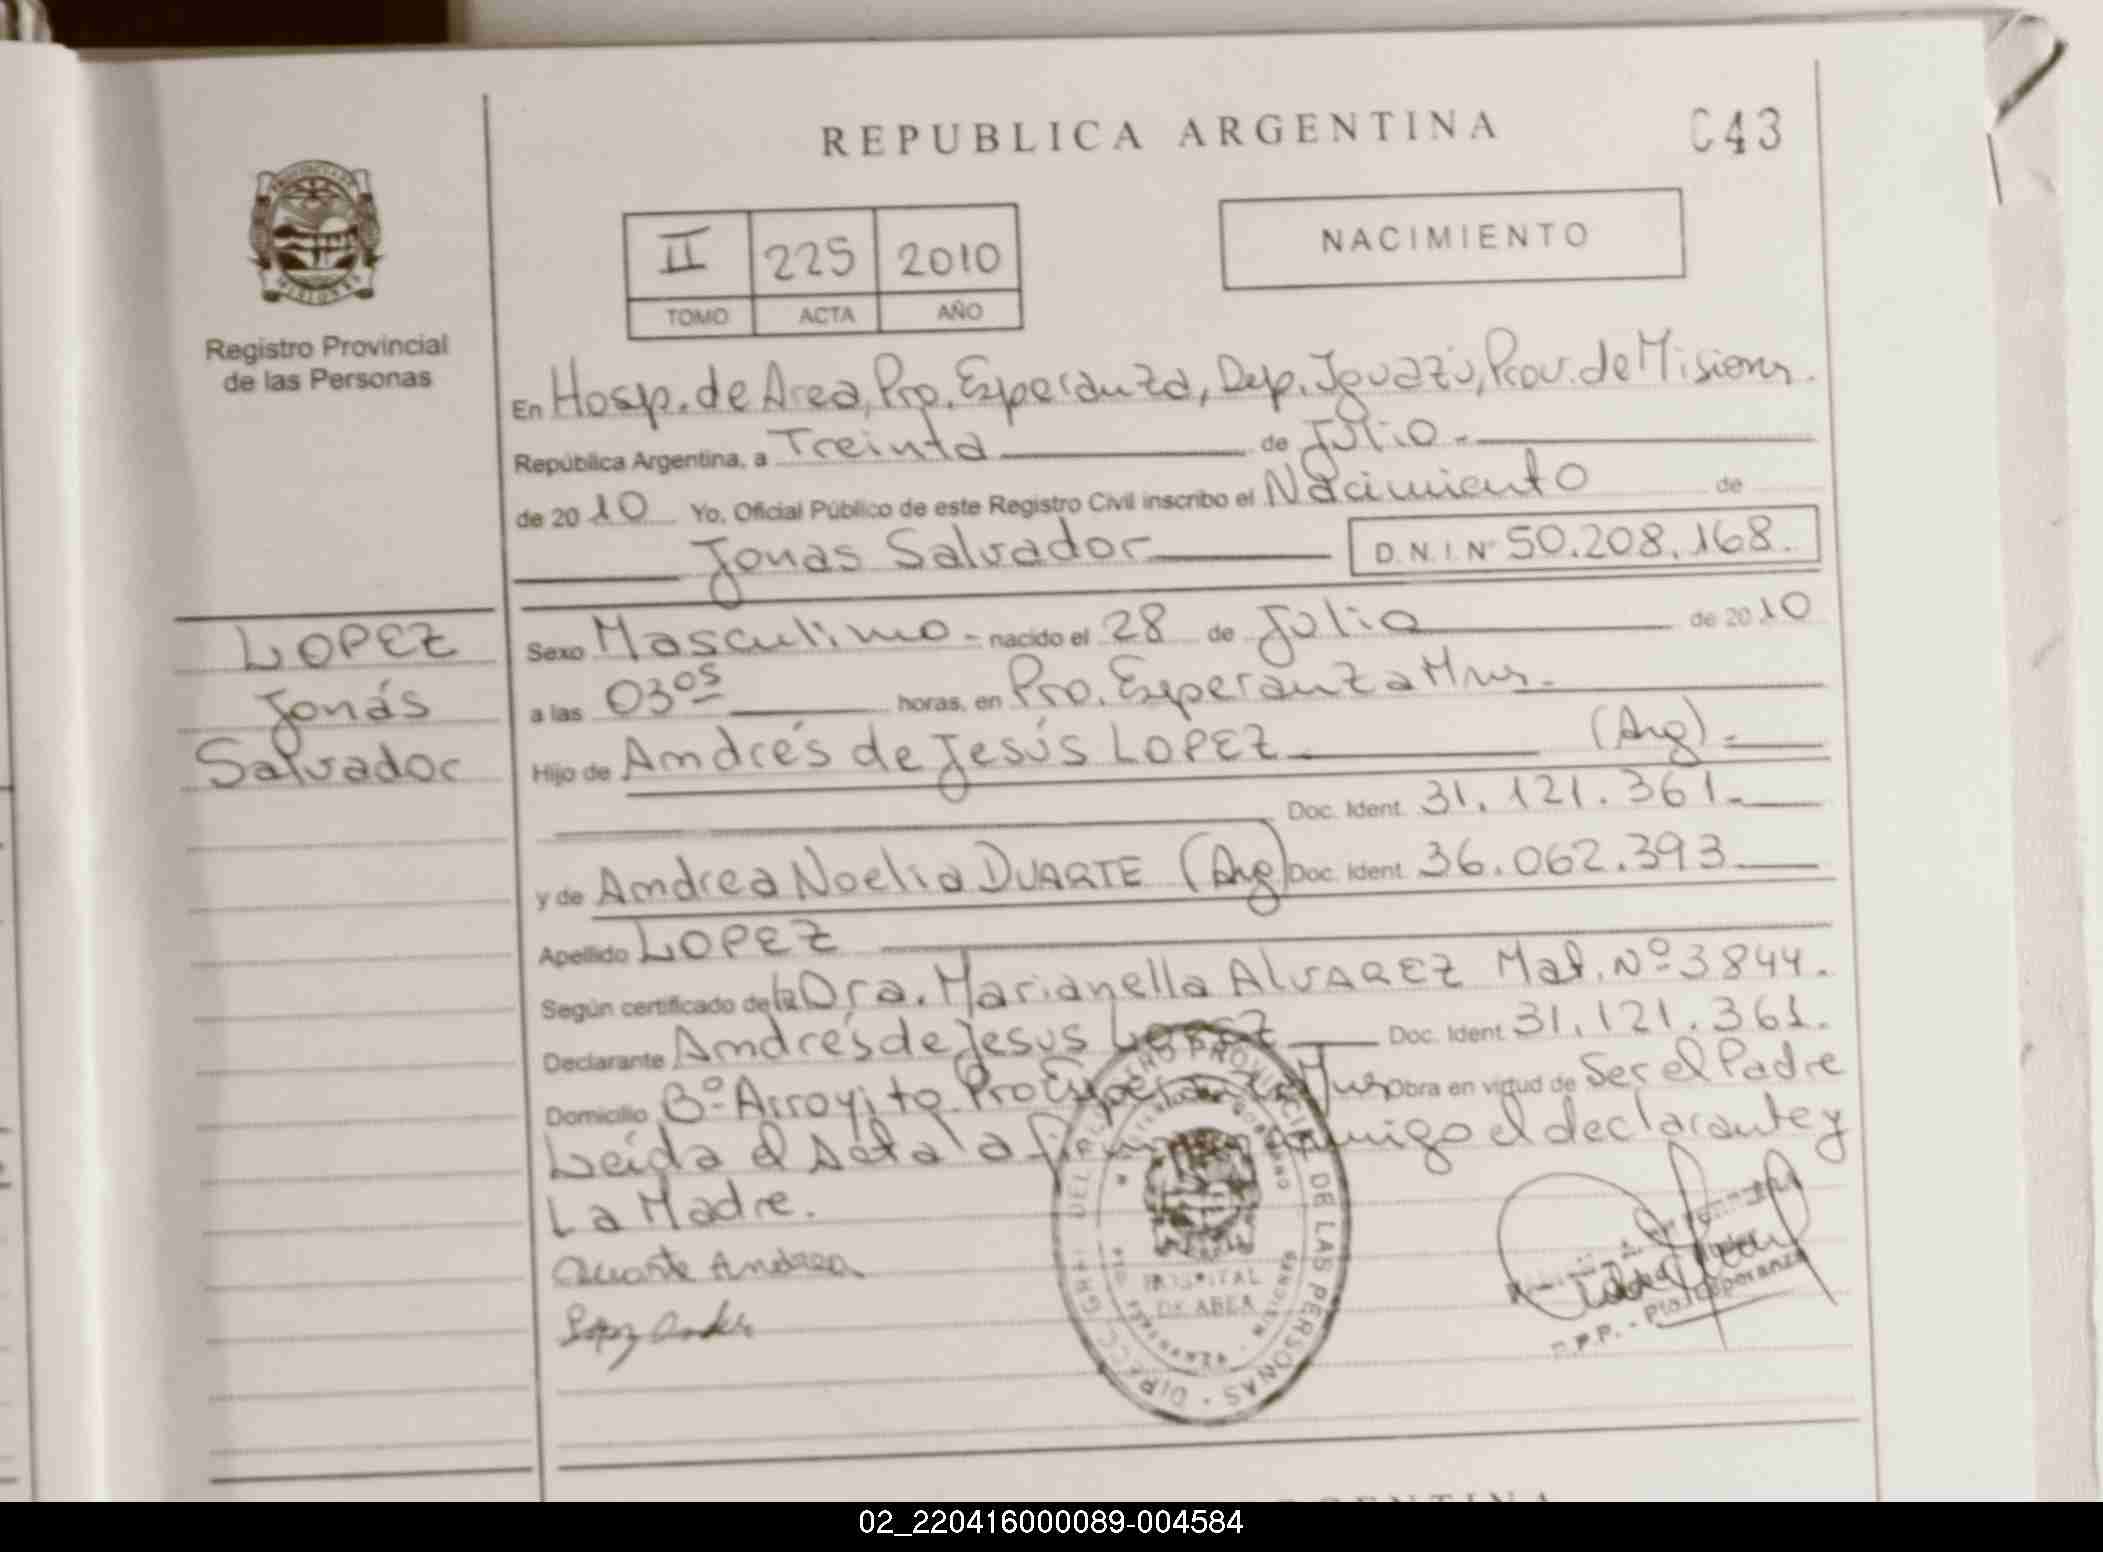 REPUBLICA ARGENTINA
C43
II 225 2010
TOMO ACTA AÑO
NACIMIENTO
Registro Provincial
de las Personas
En Hosp. de Area, Pto. Esperanza, Dep. Iguazú, Prov. de Misiones.
República Argentina, a Treinta de Julio.-
de 2010 Yo, Oficial Público de este Registro Civil inscribo el Nacimiento de
Jonas Salvador D.N.I. Nº 50.208.168.
LOPEZ
Jonás
Salvador
Sexo Masculino - nacido el 28 de Julio de 2010
a las 03 05 horas, en Pto. Esperanza Mnes.
Hijo de Andrés de Jesús LOPEZ (Arg).-
Doc. Ident. 31.121.361.-
y de Andrea Noelia DUARTE (Arg) Doc. Ident. 36.062.393
Apellido LOPEZ
Según certificado de la Dra. Marianella ALVAREZ Mat. Nº 3844.
Declarante Andrés de Jesus Lopez Doc. Ident. 31.121.361.
Domicilio Bº Arroyito Pto Esperanza Mnes Obra en virtud de Ser el Padre
Leída el Acta la firman conmigo el declarante y
La Madre.
Duarte Andrea
Lopez Andres
REGISTRO PROVINCIAL DE LAS PERSONAS
HOSPITAL
DE AREA
R.P.P. - Pto. Esperanza
02_220416000089-004584